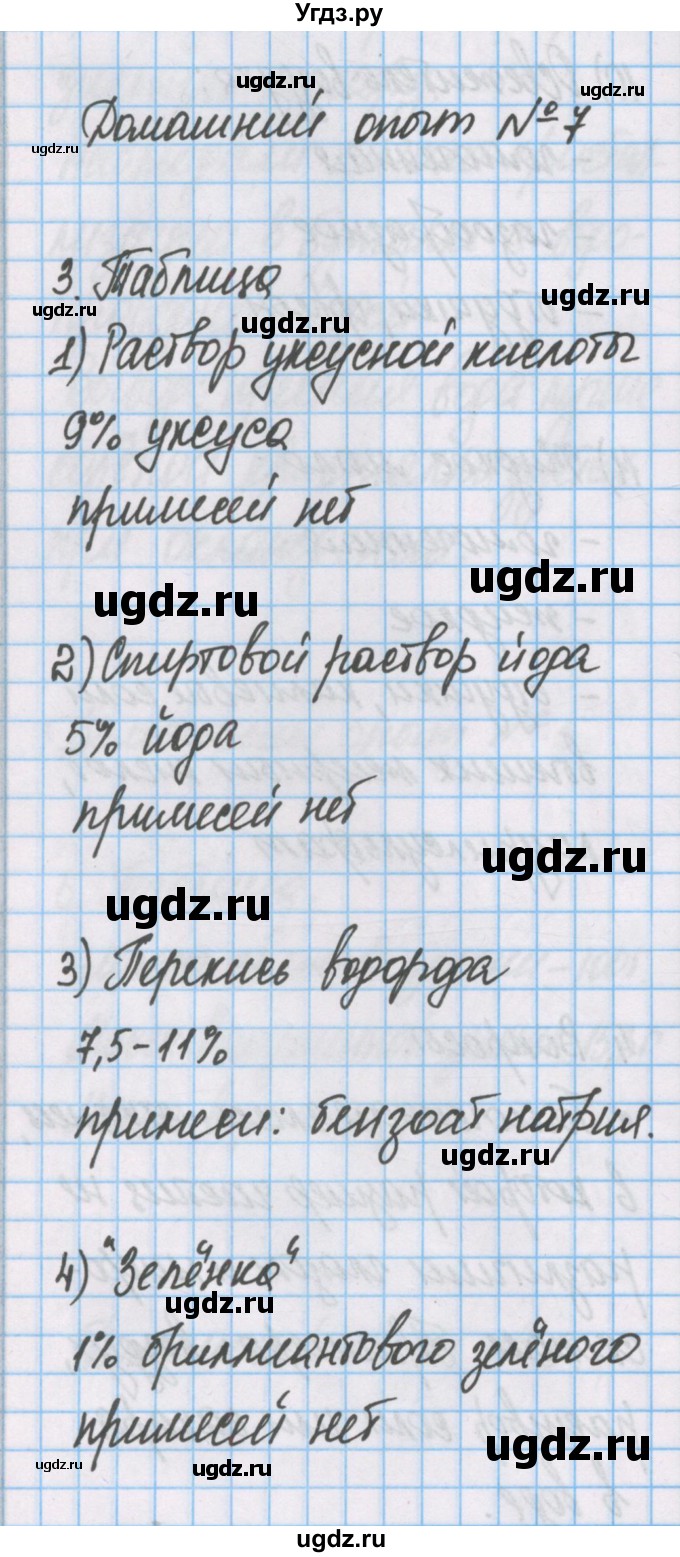 Угдз.ру
ugdz.ru
ugdz.ru
ugdz.ru
Домашний опыт №7
3. Таблица
ugdz.ru
ugdz.ru
ugdz.ru
1) Раствор уксусной кислоты
9% уксуса
примесей нет
ugdz.ru
ugdz.ru
2) Спиртовой раствор йода
5% йода
примесей нет
ugdz.ru
ugdz.ru
3) Перекись водорода
7,5-11%
примеси: бензоат натрия.
ugdz.ru
4) "Зелёнка"
ugdz.ru
1% бриллиантового зелёного
примесей нет
ugdz.ru
ugdz.ru
ugdz.ru
ugdz.ru